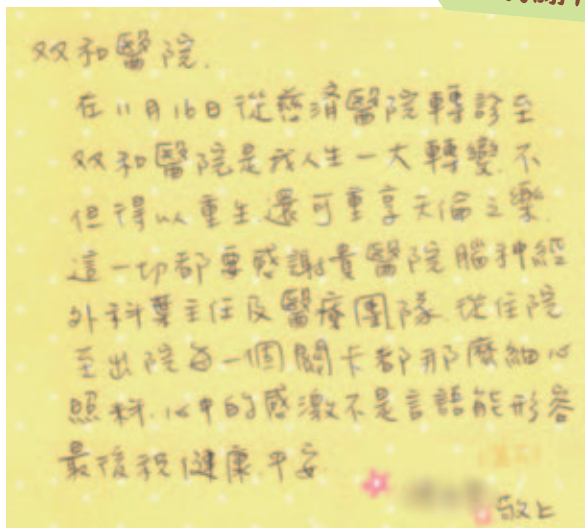 双和醫院.
在11月16日從慈濟醫院轉診至
双和醫院是我人生一大轉變.不
但得以重生還可重享天倫之樂.
這一切都要感謝貴醫院腦神經
外科葉主任及醫療團隊.從住院
至出院每一個關卡都那麼細心
照料.心中的感激不是言語能形容
最後祝健康.平安
敬上